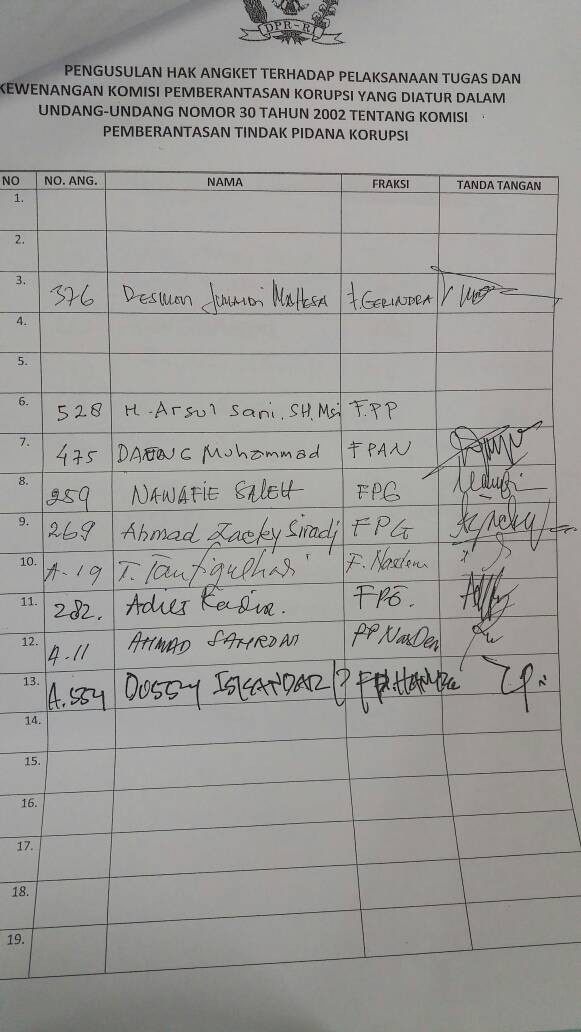 DPR-RI
PENGUSULAN HAK ANGKET TERHADAP PELAKSANAAN TUGAS DAN
KEWENANGAN KOMISI PEMBERANTASAN KORUPSI YANG DIATUR DALAM
UNDANG-UNDANG NOMOR 30 TAHUN 2002 TENTANG KOMISI
PEMBERANTASAN TINDAK PIDANA KORUPSI
NO NO. ANG. NAMA FRAKSI TANDA TANGAN
1.
2.
3. 376 DESMON JUNAIDI MAHESA F. GERINDRA
4.
5.
6. 528 H. Arsul Sani. SH. Msi F.PP
7. 475 DAENG Muhammad FPAN
8. 259 NAWAFIE SALEH FPG
9. 269 Ahmad Zacky Siradj FPG
10. A-19 T. Taufiqulhadi F. Nasdem
11. 282. Adies Kadir. FPG.
12. A.11 AHMAD SAHRONI PP NasDem
13. A.554 DOSSY ISKANDAR P F.P. HANURA
14.
15.
16.
17.
18.
19.